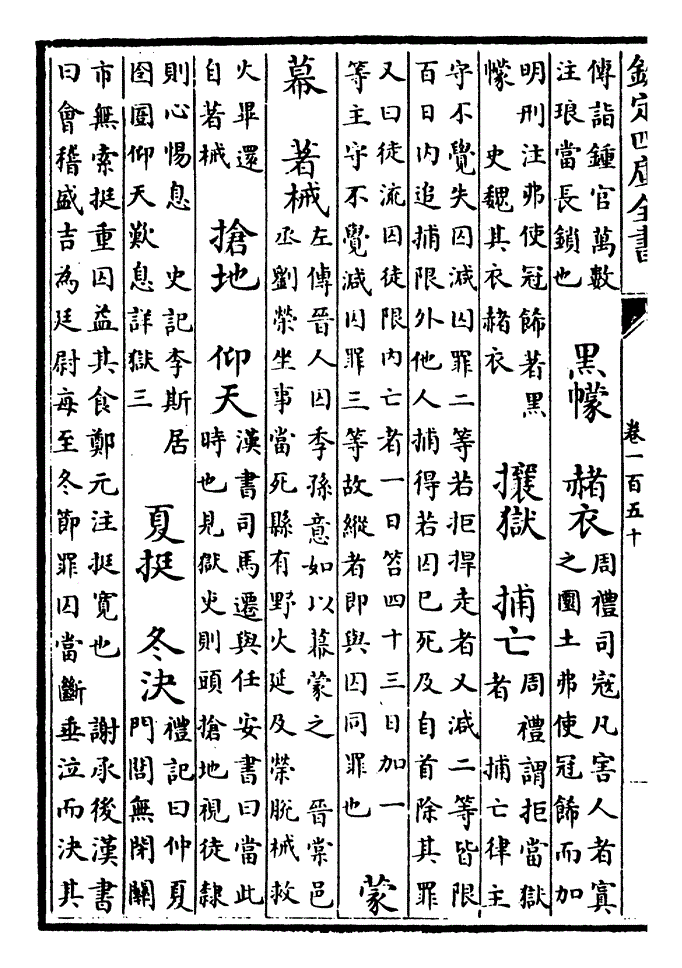 欽定四庫全書 卷一百五十
傳詣鍾官萬數
注琅當長鎖也
黑幪 赭衣
周禮司寇凡害人者寘
之圜土弗使冠飾而加
明刑注弗使冠飾著黑
幪 史魏其衣赭衣
攘獄 捕亡
周禮謂拒當獄
者 捕亡律主
守不覺失囚減囚罪二等若拒捍走者又減二等皆限
百日内追捕限外他人捕得若囚已死及自首除其罪
又曰徒流囚徒限内亡者一日笞四十三日加一
等主守不覺減囚罪三等故縱者即與囚同罪也
蒙
幕 著械
左傳晉人囚季孫意如以幕蒙之 晉棠邑
丞劉榮坐事當死縣有野火延及榮脫械救
火畢還
自著械
搶地 仰天
漢書司馬遷與任安書曰當此
時也見獄吏則頭搶地視徒隸
則心惕息 史記李斯居
囹圄仰天歎息詳獄三
夏挺 冬決
禮記曰仲夏
門閭無閉關
市無索挺重囚益其食鄭元注挺寬也 謝承後漢書
曰會稽盛吉為廷尉每至冬節罪囚當斷垂泣而決其